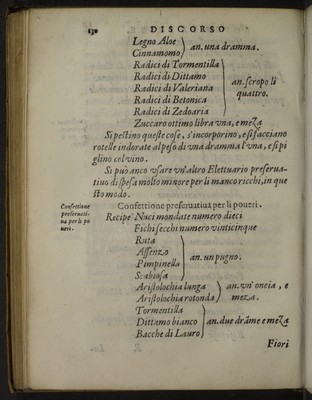 130 DISCORSO
Legno Aloe
Cinnamomo } an. una dramma.
Radici di Tormentilla
Radici di Dittamo
Radici di Valeriana
Radici di Betonica
Radici di Zedoaria
an. scropo li
quattro.
Zuccaro ottimo libra vna, e meza
Si pestino queste cose, s'incorporino, e si facciano
rotelle indorate al peso di vna dramma l'vna, e si pi
glino col vino.
Si può anco vsare vn'altro Elettuario preserua-
tiuo di spesa molto minore per li manco ricchi, in que
sto modo.
Confettione
preseruati-
ua per li po
ueri.
Confettione preseruatiua per li poueri.
Recipe Nuci mondate numero dieci
Fichi secchi numero vinticinque
Ruta
Assenzo
Pimpinella
Scabiosa
an. un pugno.
Aristolochia lunga
Aristolochia rotonda
an. vn' oncia, e
meza.
Tormentilla
Dittamo bianco
Bacche di Lauro
an. due drāme e meza
Fiori